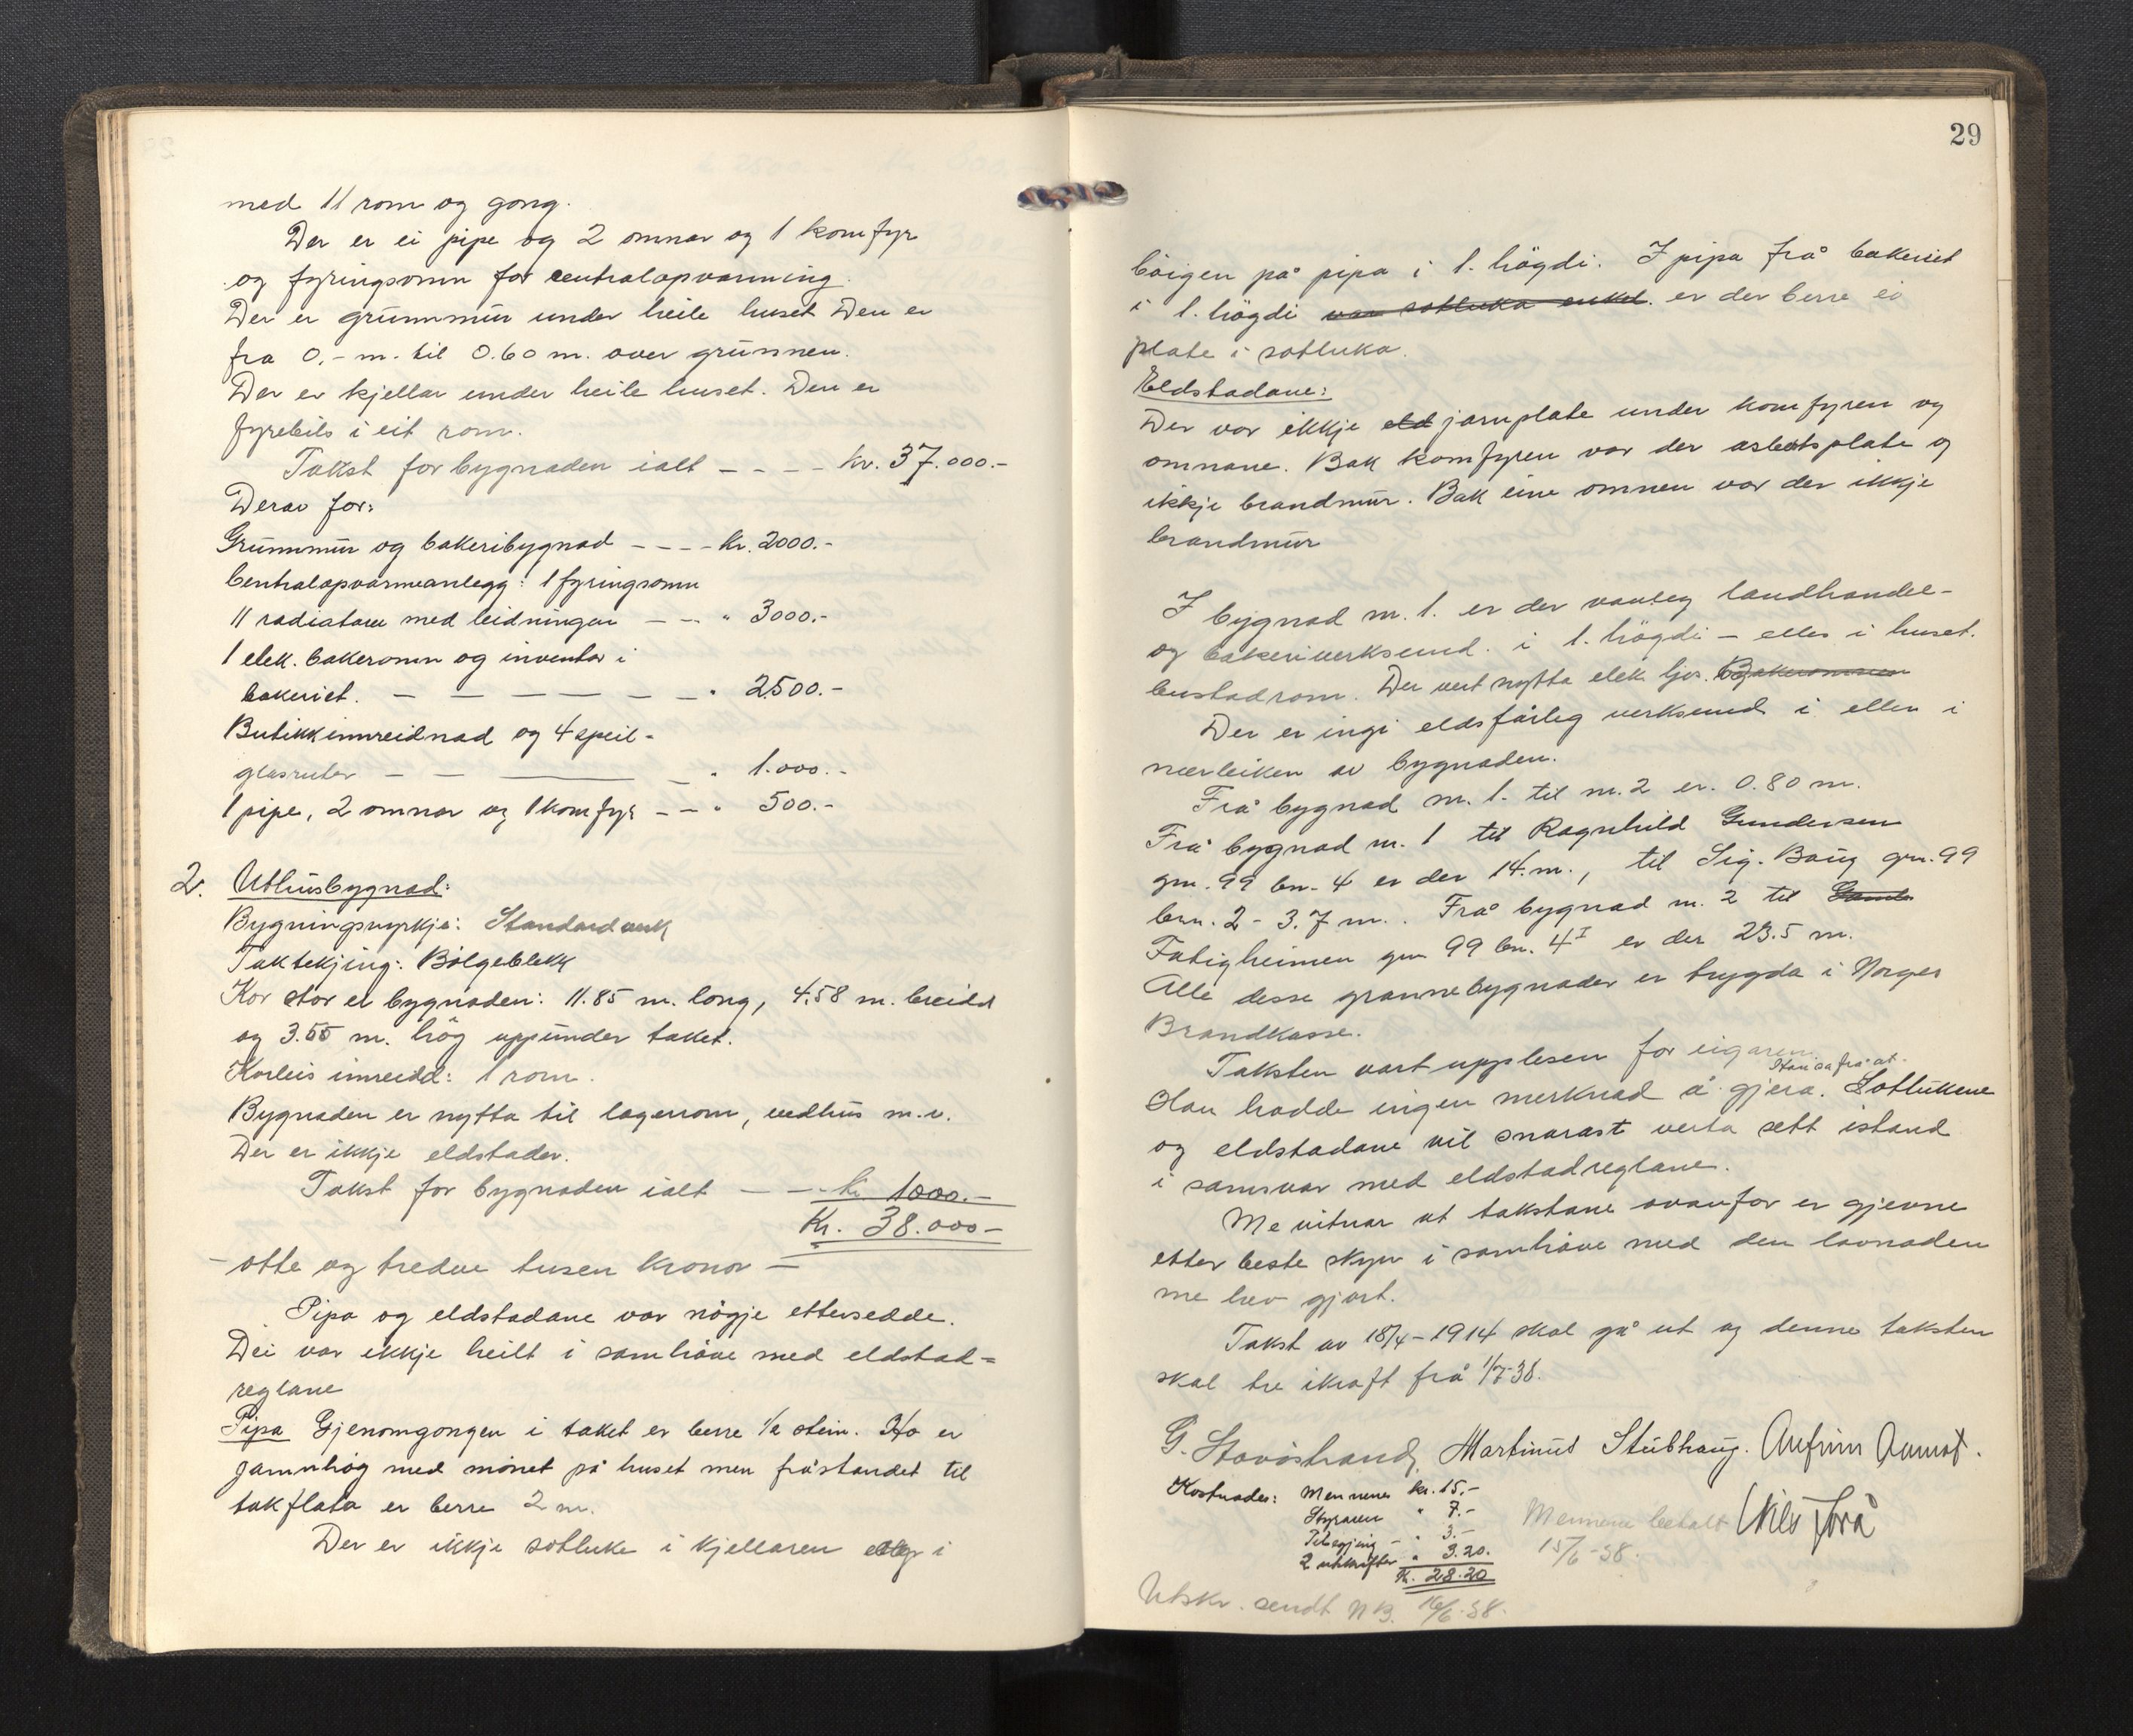 med 11 rom og gong.
Der er ei pipe og 2 omnar og 1 komfyr
og fyringsomn for centralopvarming.
Der er grunnmur under heile huset Den er
fra 0,- m. til 0.60 m. over grunnen.
Der er kjellar under heile huset. Den er
fyrebils i eit rom.
Takst for bygnaden ialt - - - - kr. 37.000.-
Derav for:
Grunnmur og bakeribygnad - - - - kr. 2000.-
Centralopvarmeanlegg: 1 fyringsomn
11 radiatorer med leidningen - - " 3000.-
1 elek. bakeromn og inventar i
bakeriet. - - - - - - " 2500.-
Butikkinnreidnad og 4 speil-
glasruter - - - - " 1.000.-
1 pipe, 2 omnar og 1 komfyr - - " 500.-
2. Uthusbygnad:
Bygningsvyrkje: Standardverk
Taktekjing: Bølgeblekk
Kor stor er bygnaden: 11.85 m. long, 4.58 m. breidd
og 3.55 m. høg uppunder taket.
Korleis innreidd: 1 rom.
Bygnaden er nytta til lagerrom, vedhus m.v.
Der er ikkje eldstader.
Takst for bygnaden ialt - - kr 1000.-
Kr. 38.000-
- otte og tredve tusen kronor -
Pipa og eldstadane var nøgje ettersedde.
Dei var ikkje heilt i samhøve med eldstad=
reglane
Pipa Gjenomgongen i taket er berre 1/2 stein. Ho er
jamnhøg med mønet på huset men fråstandet til
takflata er berre 2 m.
Der er ikkje sotluke i kjellaren i
29
bøigen på pipa i 1. høgdi. I pipa frå bakeriet
i 1. høgdi var sotluka enkel. er der berre ei
plate i sotluka.
Eldstadane:
Der var ikkje eld jarnplate under komfyren og
omnane. Bak komfyren var der asbestsplate og
ikkje brandmur. Bak eine omnen var der ikkje
brandmur
I bygnad m. 1. er der vanleg landhandel-
og bakeriverksemd. i 1. høgdi - elles i huset.
bustadrom. Der vert nytta elek. ljos. Bakeromnen
Der er ingi eldsfårleg verksemd i eller i
nærleiken av bygnaden.
Frå bygnad m. 1. til m. 2 er. 0.80 m.
Frå bygnad m. 1 til Ragnhild Gundersen
gm. 99 bn. 4 er der 14. m., til Sig. Baug gm. 99
brn. 2 - 3.7 m.. Frå bygnad m. 2 til
Fatigheimen gm 99 bn. 4 I er der 23.5 m.
Alle desse grannebygnader er trygda i Norges
Brandkasse.
Taksten vart upplesen for eigaren.
Han sa frå at
Han hadde ingen merknad å gjera. Sotlukene
og eldstadane vil snarast verta sett istand
i samsvar med eldstadreglane.
Me vitnar at takstane ovanfor er gjevne
etter beste skyn i samhøve med den lovnaden
me hev gjort.
Takst av 18/4-1914 skal gå ut og denne taksten
skal tre ikraft frå 1/7-38.
G. Stavøstrand, Martinus Stubhaug. Anfinn
Kostnader: Mennene kr. 15,-
Styraren " 7.-
Tilsegjing - " 3.-
2 utskrifter " 3.20.
Kr. 28.20
Mennene betalt
15/6-38.
Nils
Utskr. sendt NB. 16/6-38.